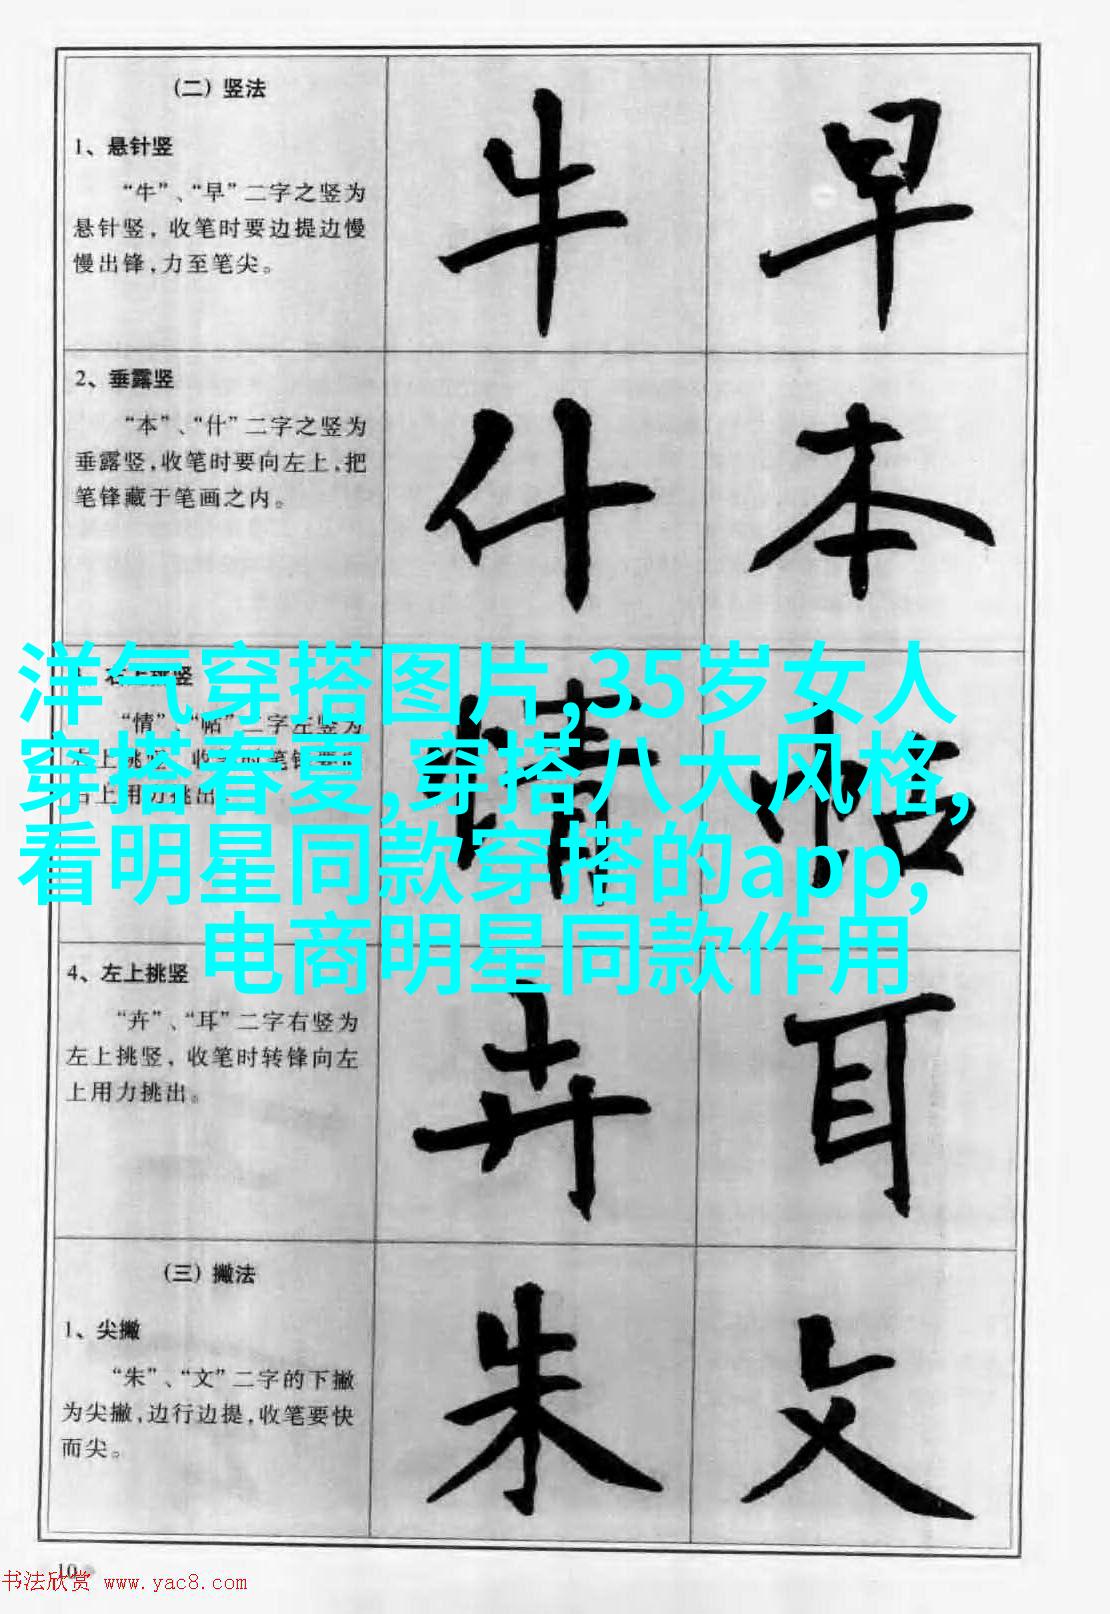 （二）竖法
1、悬针竖
“牛”、“早”二字之竖为
悬针竖，收笔时要边提边慢
慢出锋，力至笔尖。
牛 早
2、垂露竖
“本”、“什”二字之竖为
垂露竖，收笔时要向左上，把
笔锋藏于笔画之内。
什 本
右上挑竖
“情”、“帖”二字左竖为
上挑
上用力挑出
情 帖
洋气穿搭图片,35岁女人
穿搭春夏,穿搭八大风格,
看明星同款穿搭的app,
电商明星同款作用
4、左上挑竖
“卉”、“耳”二字右竖为
左上挑竖，收笔时转锋向左
上用力挑出。
卉 耳
（三）撇法
1、尖撇
“朱”、“文”二字的下撇
为尖撇，边行边提，收笔要快
而尖。
朱 文
10
书法欣赏 www.yac8.com